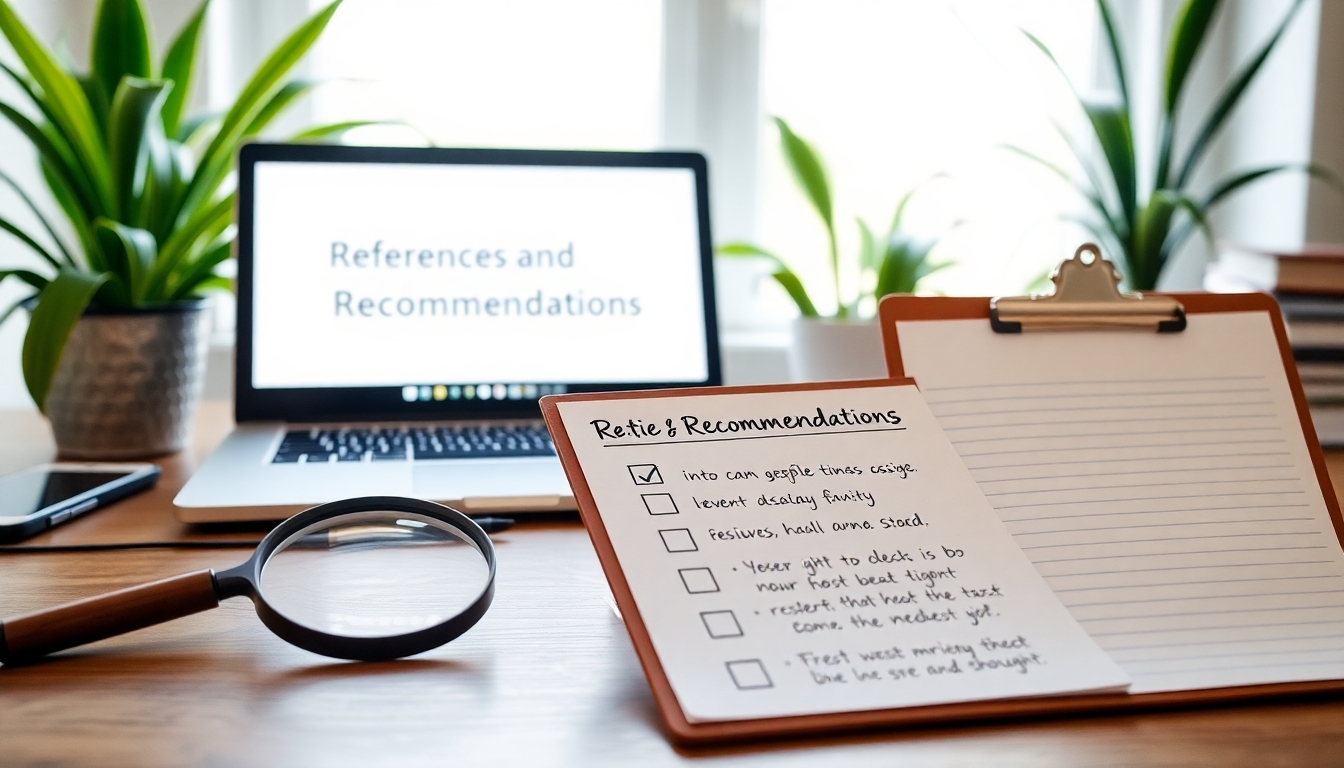 References and
Recommendations
Re:tie & Recommendations
into cam gesple tinas cssige.
levent dscalay fruity
fesiuves, haall ama stord.
• Yeser ght to deck is bo
nowr fost beat tigont
• restert, that heat the tast
come the nedest yof.
• Frest west mriery thect
line he sre and shought.